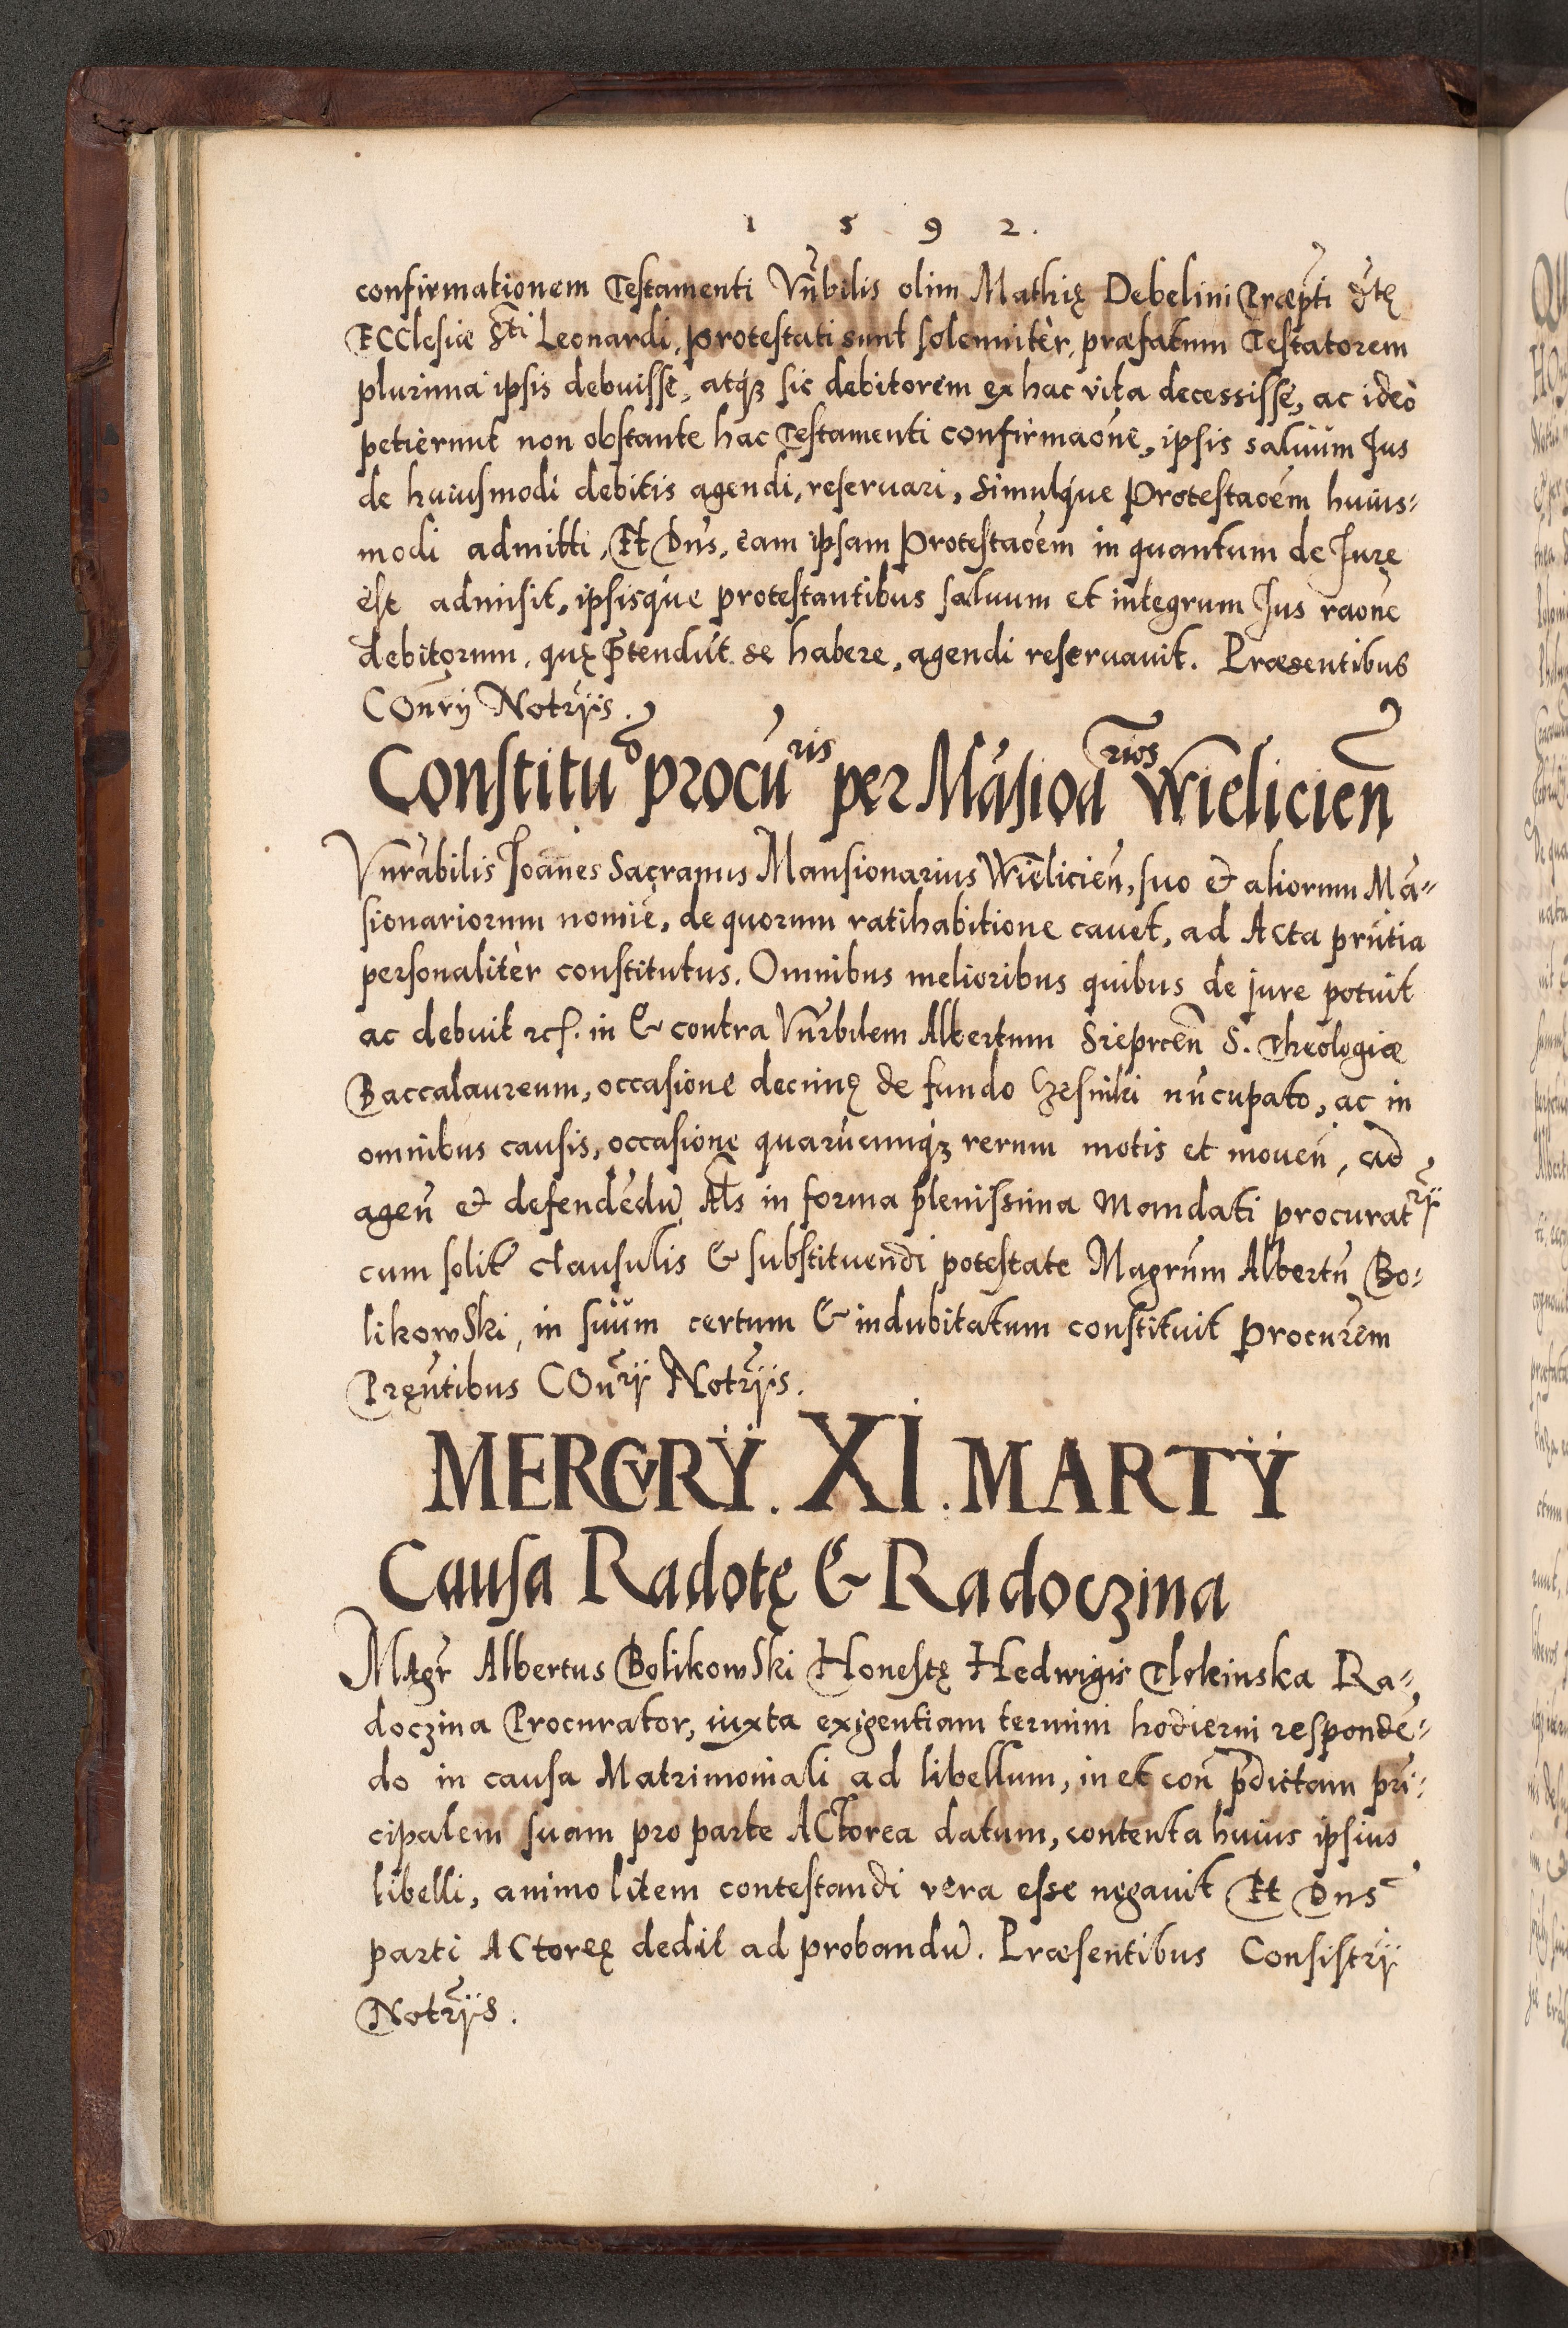 1 5 9 2.
confirmationem Testamenti Vn̄bilis olim Mathię Debelini Præpti
ECClesiæ Sti Leonardi, protestati sunt solenniter, præfatum Testatorem
plurima ipsis debuisse, atqꝫ sic debitorem ex hac vita decessisse, ac ideò
petierunt non obstante hac Testamenti confirmaone, ipsis saluum Jus
de huiusmodi debitis agendi, reseruari, simulque Protestaoem huius-
modi admitti, Et Dns, eam ipsam Protestaoem in quantum de Jure
est admisit, ipsisque protestantibus saluum et integrum Jus raone
debitorum, quę p̄tendut se habere, agendi reseruauit. Præsentibus
COnrÿ Notrÿs.
Constituo procuris per Māsioarios Wieliciēn
Vnrabilis Joānes Sacranus Mansionarius Wielicień, suo & aliorum Mā-
sionariorum nomīe, de quorum ratihabitione cauet, ad Acta prūtia
personaliter constitutus. Omnibus melioribus quibus de jure potuit
ac debuit in & contra Vnrbilem Albertum S. Theologiæ
Baccalaureum, occasione decimę de fundo nūcupato, ac in
omnibus causis, occasione quarūcunqꝫ rerum motis et mouēn, ad
agēn & defendēdū, Als in forma plenissima Mandati procuratrÿ
cum solit clausulis & substituendi potestate Magrūm Albertū Bo-
likowski, in suum certum & indubitatum constituit Procurēm
Pręūtibus COnrÿ Notrÿs.
MERCVRŸ. XI. MARTŸ
Causa Radotę & Radoczina
MAgr Albertus Bolikowski Honestę Hedwigis Tlokinska Ra-
doczina Procurator, iuxta exigentiam termini hodierni respondē-
do in causa Matrimoniali ad libellum, in et con p̄dictam prī-
cipalem suam pro parte ACtorea datum, contenta huius ipsius
libelli, animo litem contestandi vera esse negauit Et Dns
parti ACtoreę dedit ad probandū. Præsentibus Consistrÿ
Notrÿs.